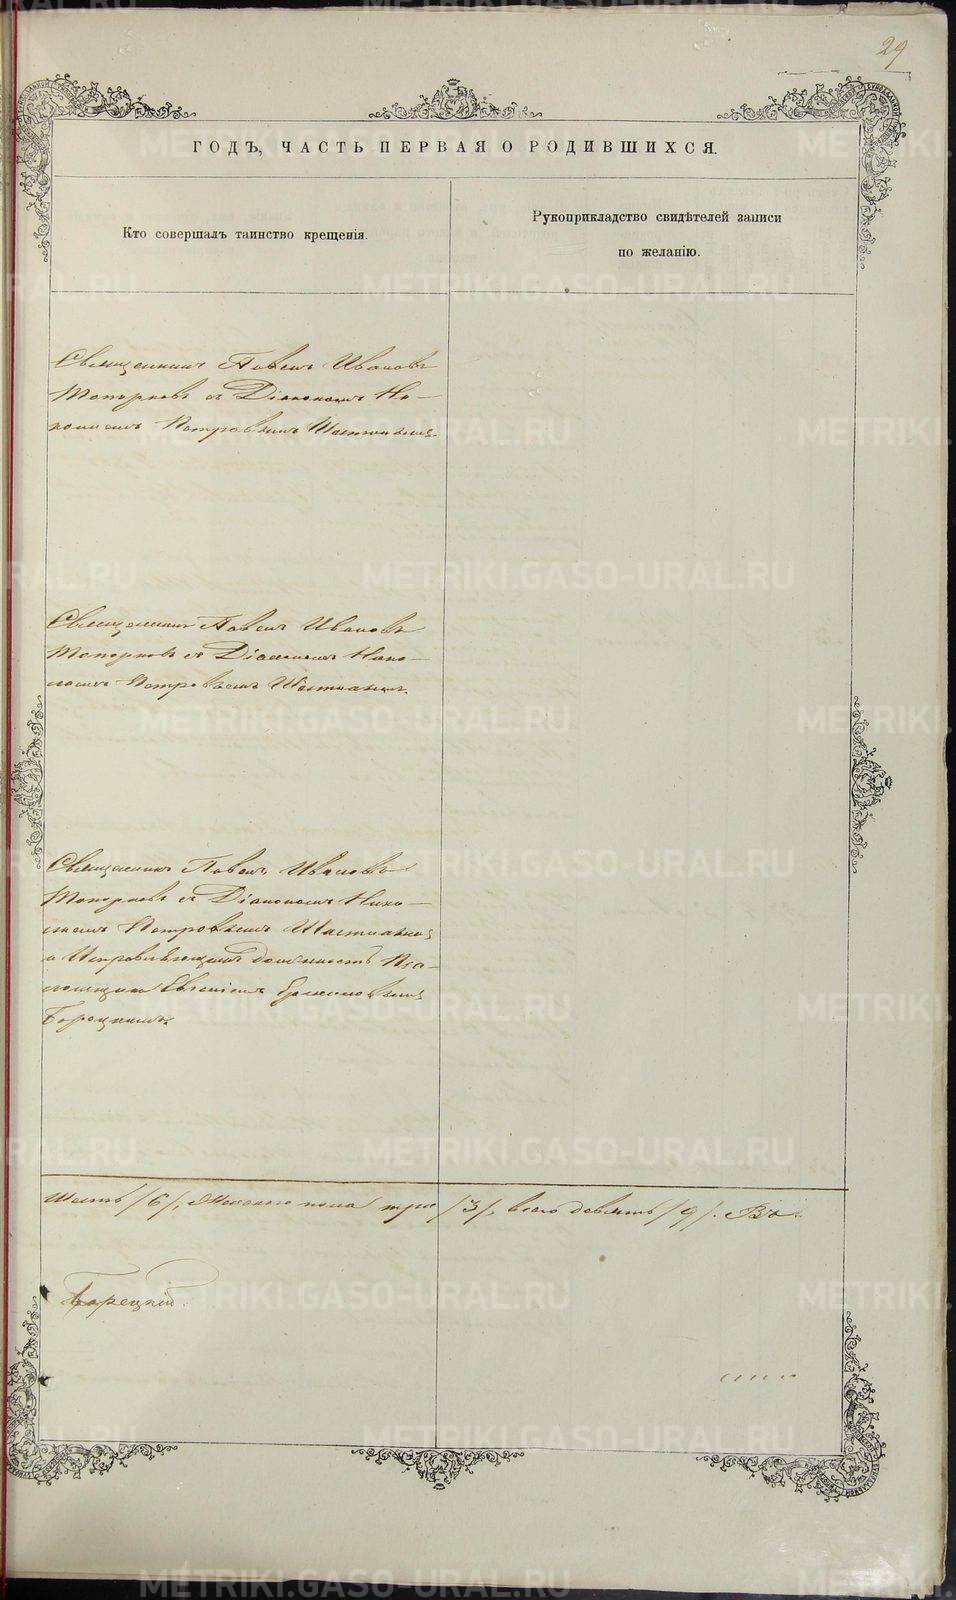 29
ГОДЪ, ЧАСТЬ ПЕРВАЯ О РОДИВШИХСЯ.
Кто совершалъ таинство крещенія.
Рукоприкладство свидѣтелей записи
по желанію.
Священникъ Павелъ Ивановъ
Топорковъ съ Діакономъ Ни-
колаемъ Петровымъ
Священникъ Павелъ Ивановъ
Топорковъ съ Діакономъ Нико-
лаемъ Петровымъ
Священникъ Павелъ Ивановъ
Топорковъ съ Діакономъ Нико-
лаемъ Петровымъ
и Исправляющимъ должность Пса-
ломщика Евгеніемъ Ермиловымъ
Борецкимъ.
Шесть /6/, Женскаго пола три /3/, всего девять /9/.
Борецкій.
METRIKI.GASO-URAL.RU